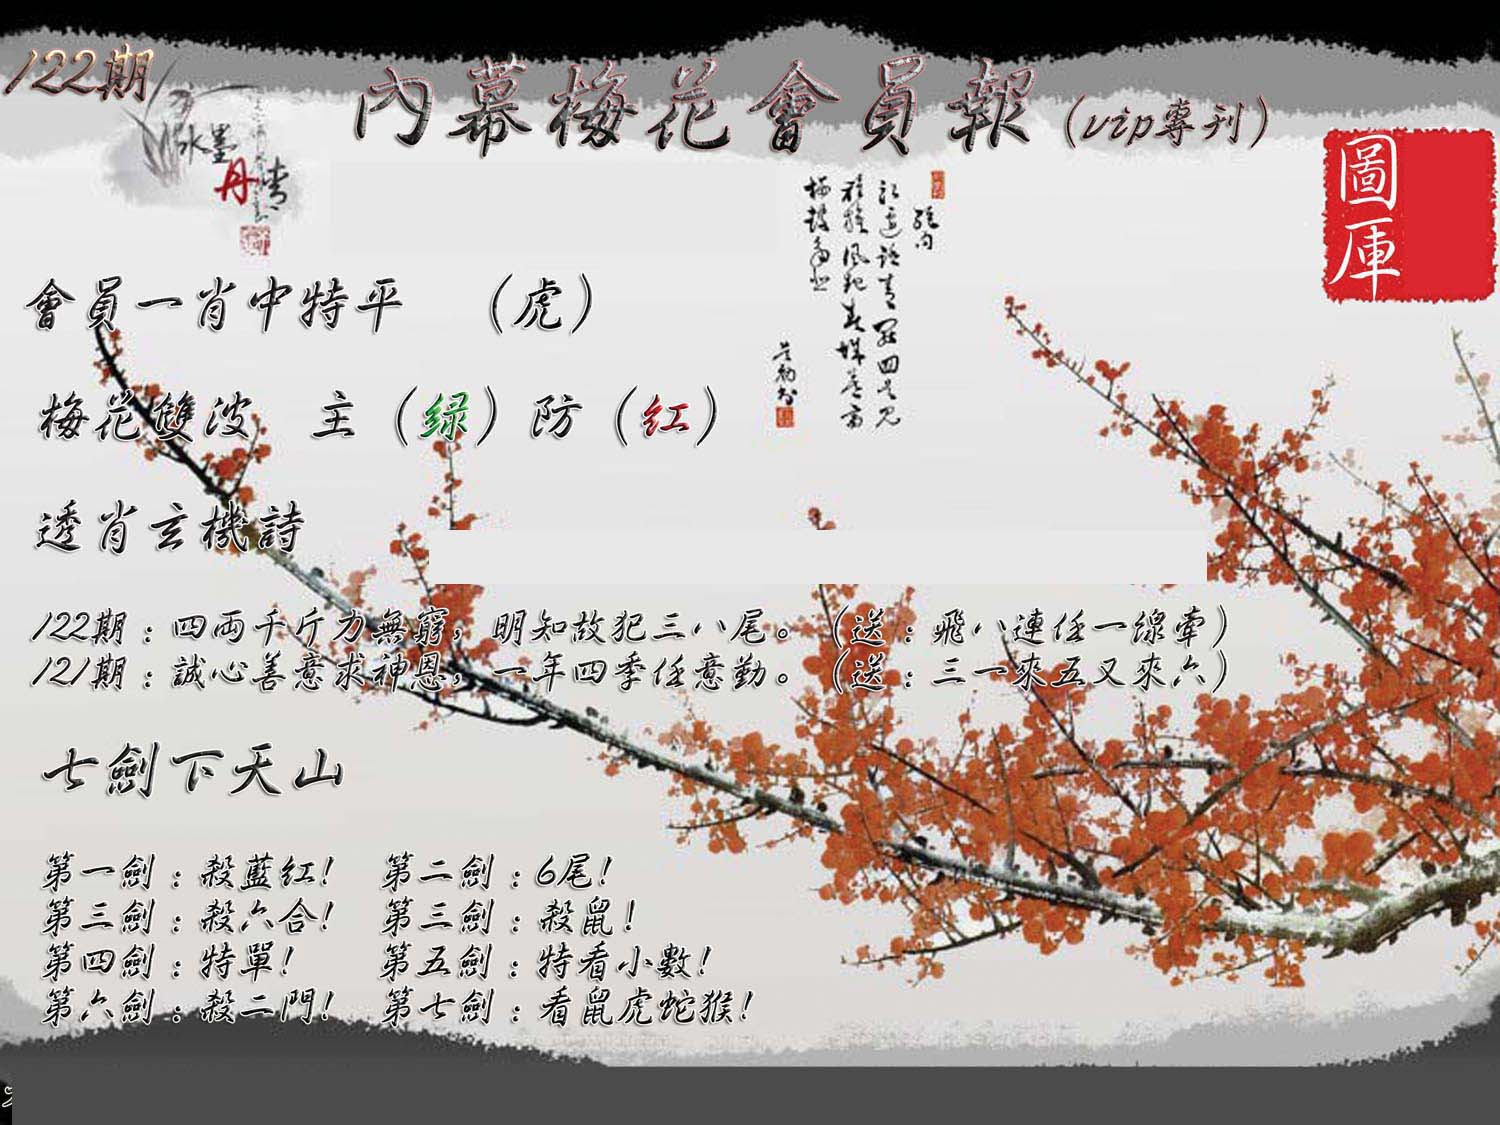 122期
內幕梅花會員報（vip專刊）
水墨
丹青
圖庫
會員一肖中特平　（虎）
梅花雙波　主（綠）防（紅）
透肖玄機詩
122期：四両千斤力無窮，明知故犯三八尾。（送：飛八連任一線牽）
121期：誠心善意求神恩，一年四季任意勤。（送：三一來五又來六）
七劍下天山
第一劍：殺藍紅！　第二劍：6尾！
第三劍：殺六合！　第三劍：殺鼠！
第四劍：特單！　第五劍：特看小數！
第六劍：殺二門！　第七劍：看鼠虎蛇猴！